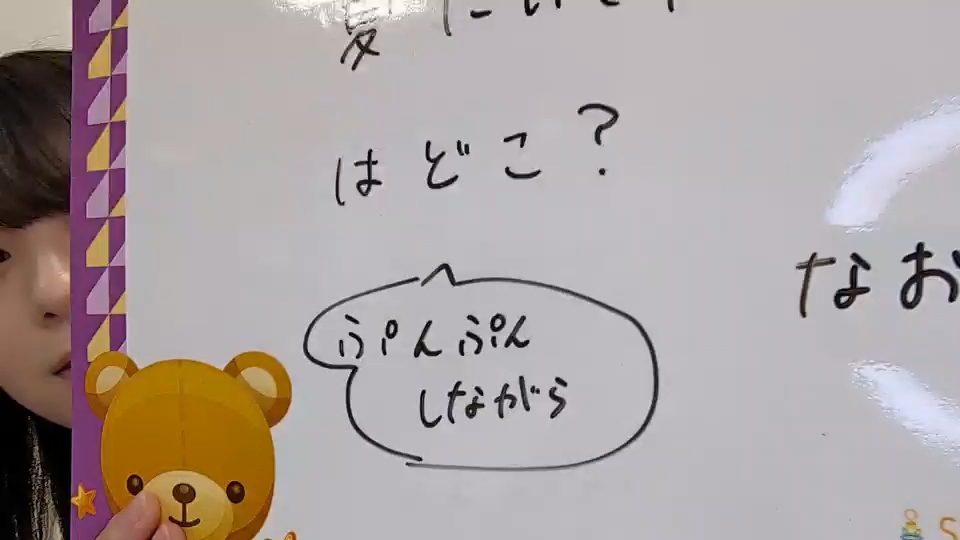 はどこ?
ぷんぷん
しながら
なお